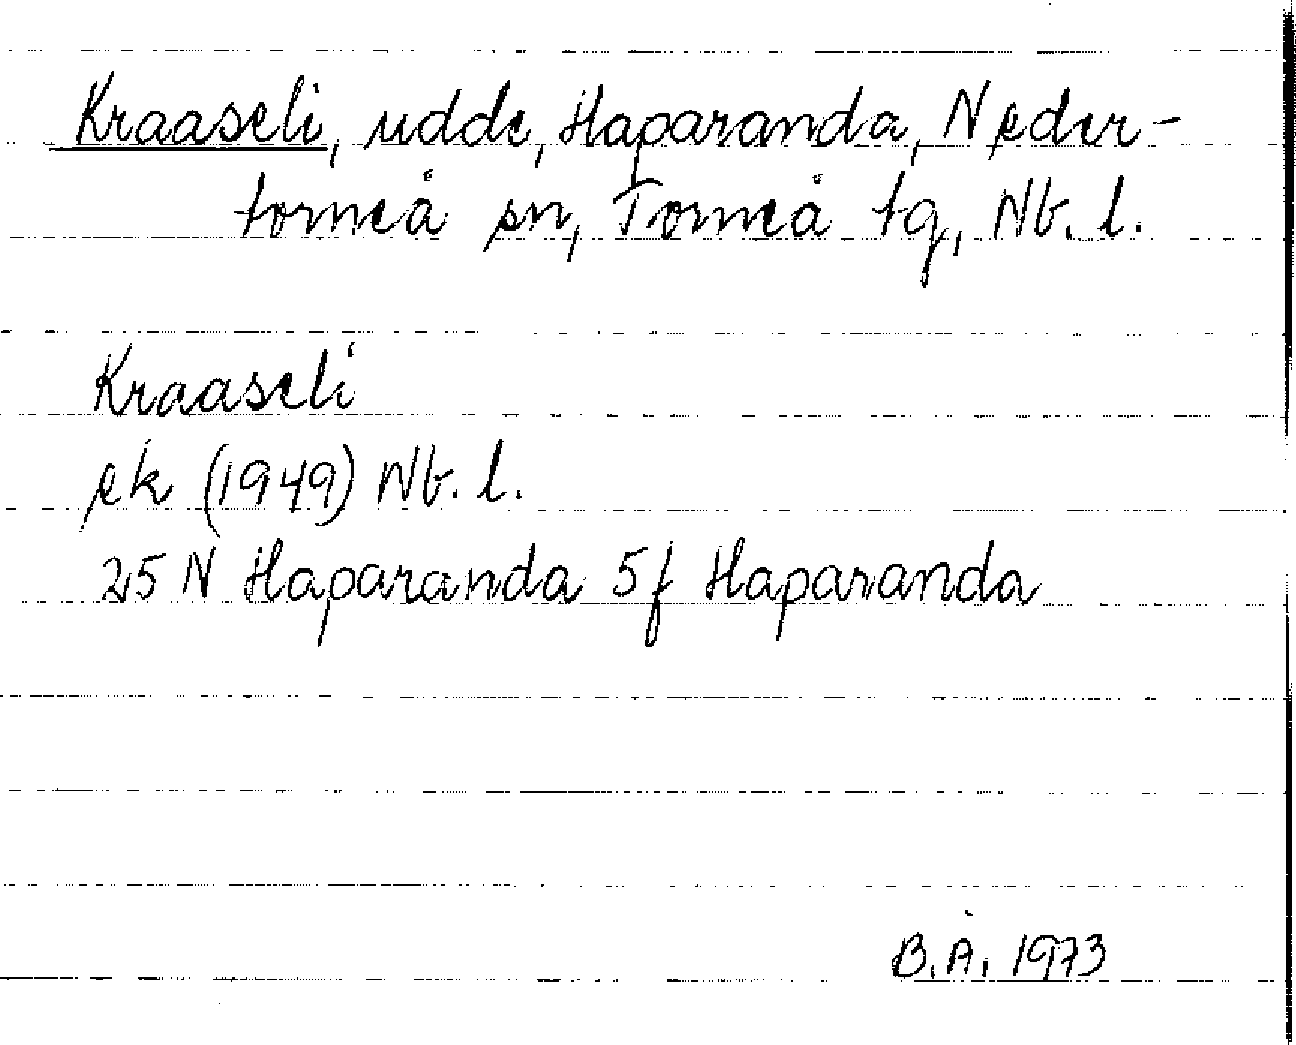 Kraaseli, udde, Haparanda, Neder-
torneå sn, Torneå tg, Nb. l.
Kraaseli
ek (1949) Nb. l.
25 N Haparanda 5f Haparanda
B.Å. 1973